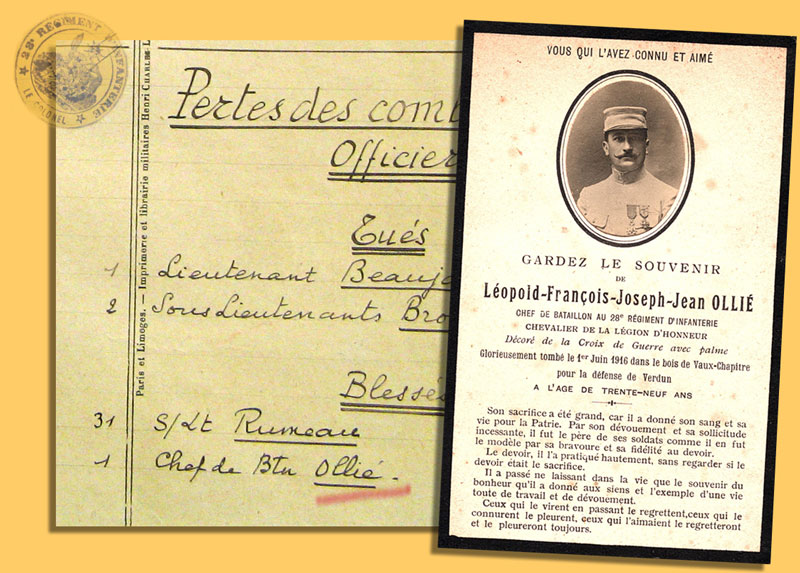 28e REGIMENT D'INFANTERIE
LE COLONEL
Paris et Limoges. — Imprimerie et librairie militaires Henri CHARLES-L
Pertes des com
Officier
Tués
1 Lieutenant Beauj
2 Sous Lieutenants Bro
Blessé
31 S/Lt Rumeau
1 Chef de Btn Ollié.
VOUS QUI L'AVEZ CONNU ET AIMÉ
GARDEZ LE SOUVENIR
DE
Léopold-François-Joseph-Jean OLLIÉ
CHEF DE BATAILLON AU 28e RÉGIMENT D'INFANTERIE
CHEVALIER DE LA LÉGION D'HONNEUR
Décoré de la Croix de Guerre avec palme
Glorieusement tombé le 1er Juin 1916 dans le bois de Vaux-Chapitre
pour la défense de Verdun
A L'AGE DE TRENTE-NEUF ANS
Son sacrifice a été grand, car il a donné son sang et sa
vie pour la Patrie. Par son dévouement et sa sollicitude
incessante, il fut le père de ses soldats comme il en fut
le modèle par sa bravoure et sa fidélité au devoir.
Le devoir, il l'a pratiqué hautement, sans regarder si le
devoir était le sacrifice.
Il a passé ne laissant dans la vie que le souvenir du
bonheur qu'il a donné aux siens et l'exemple d'une vie
toute de travail et de dévouement.
Ceux qui le virent en passant le regrettent, ceux qui le
connurent le pleurent, ceux qui l'aimaient le regretteront
et le pleureront toujours.